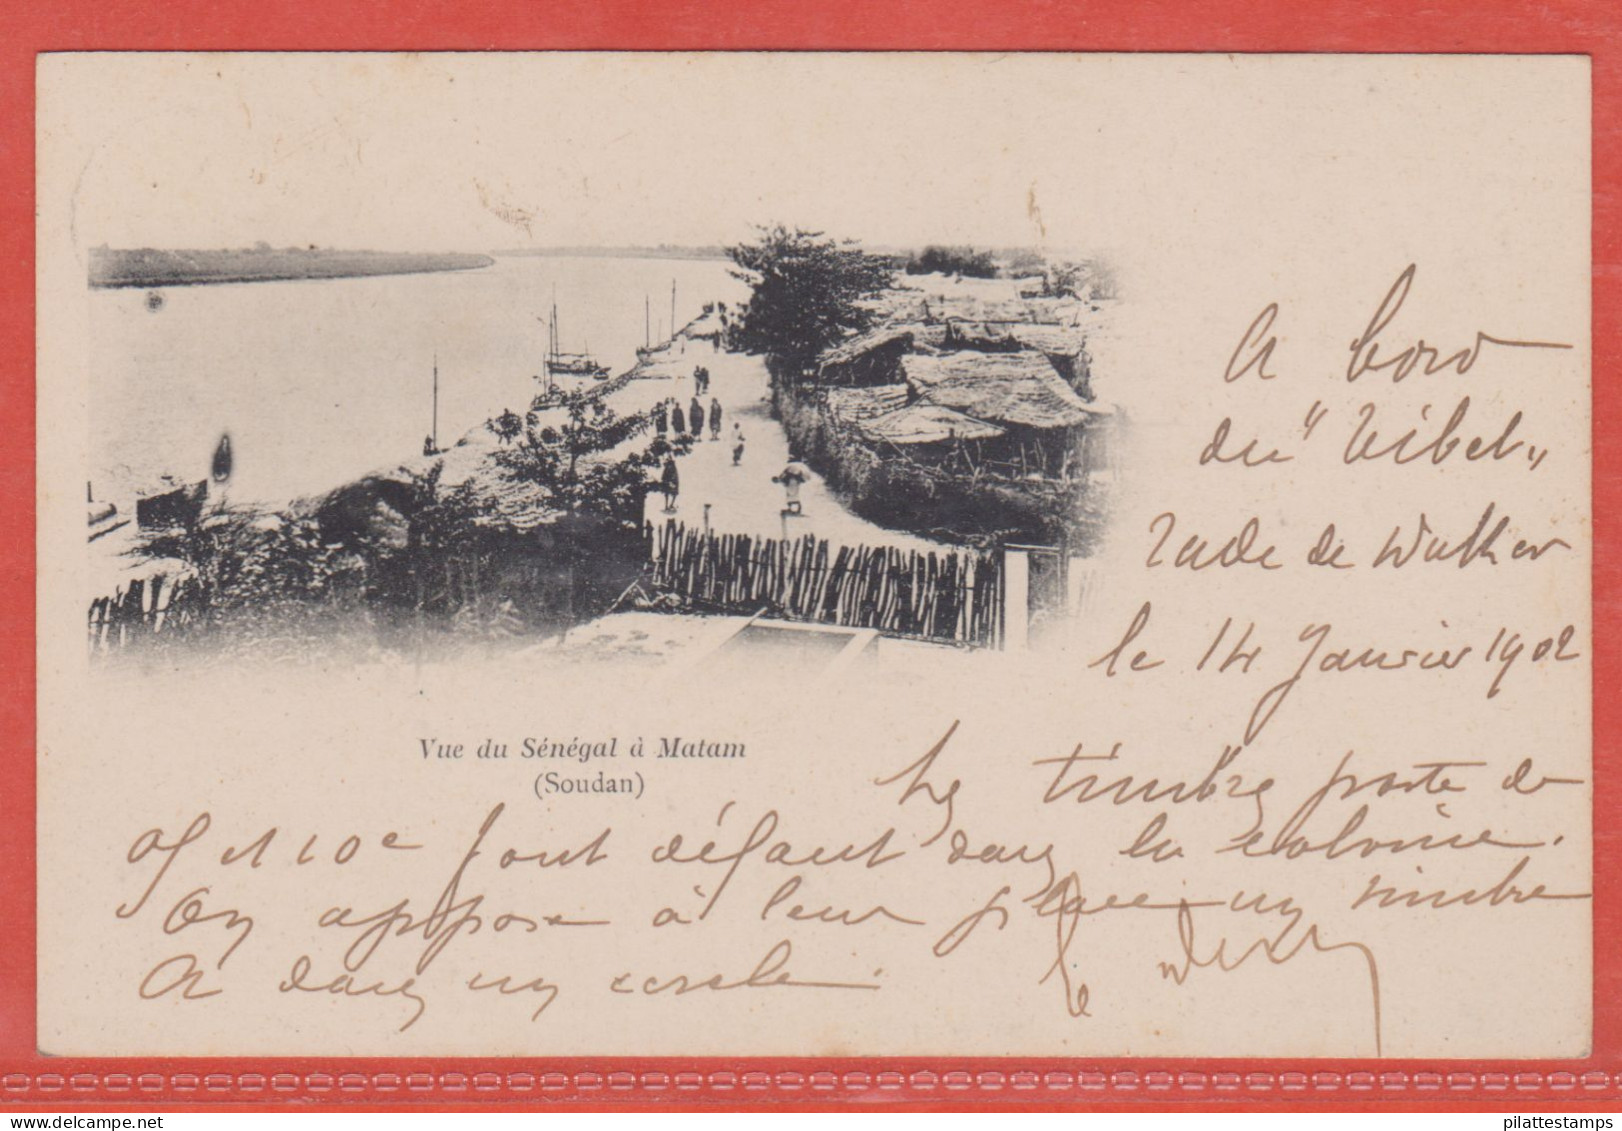 A bord
du "Vibel"
rade de Wathen
le 14 Janvier 1902
Vue du Sénégal à Matam
(Soudan)
Les timbres poste de
05 et 10c font défaut dans la colonie.
On appose à leur place un timbre
A dans un cercle.
pilattestamps